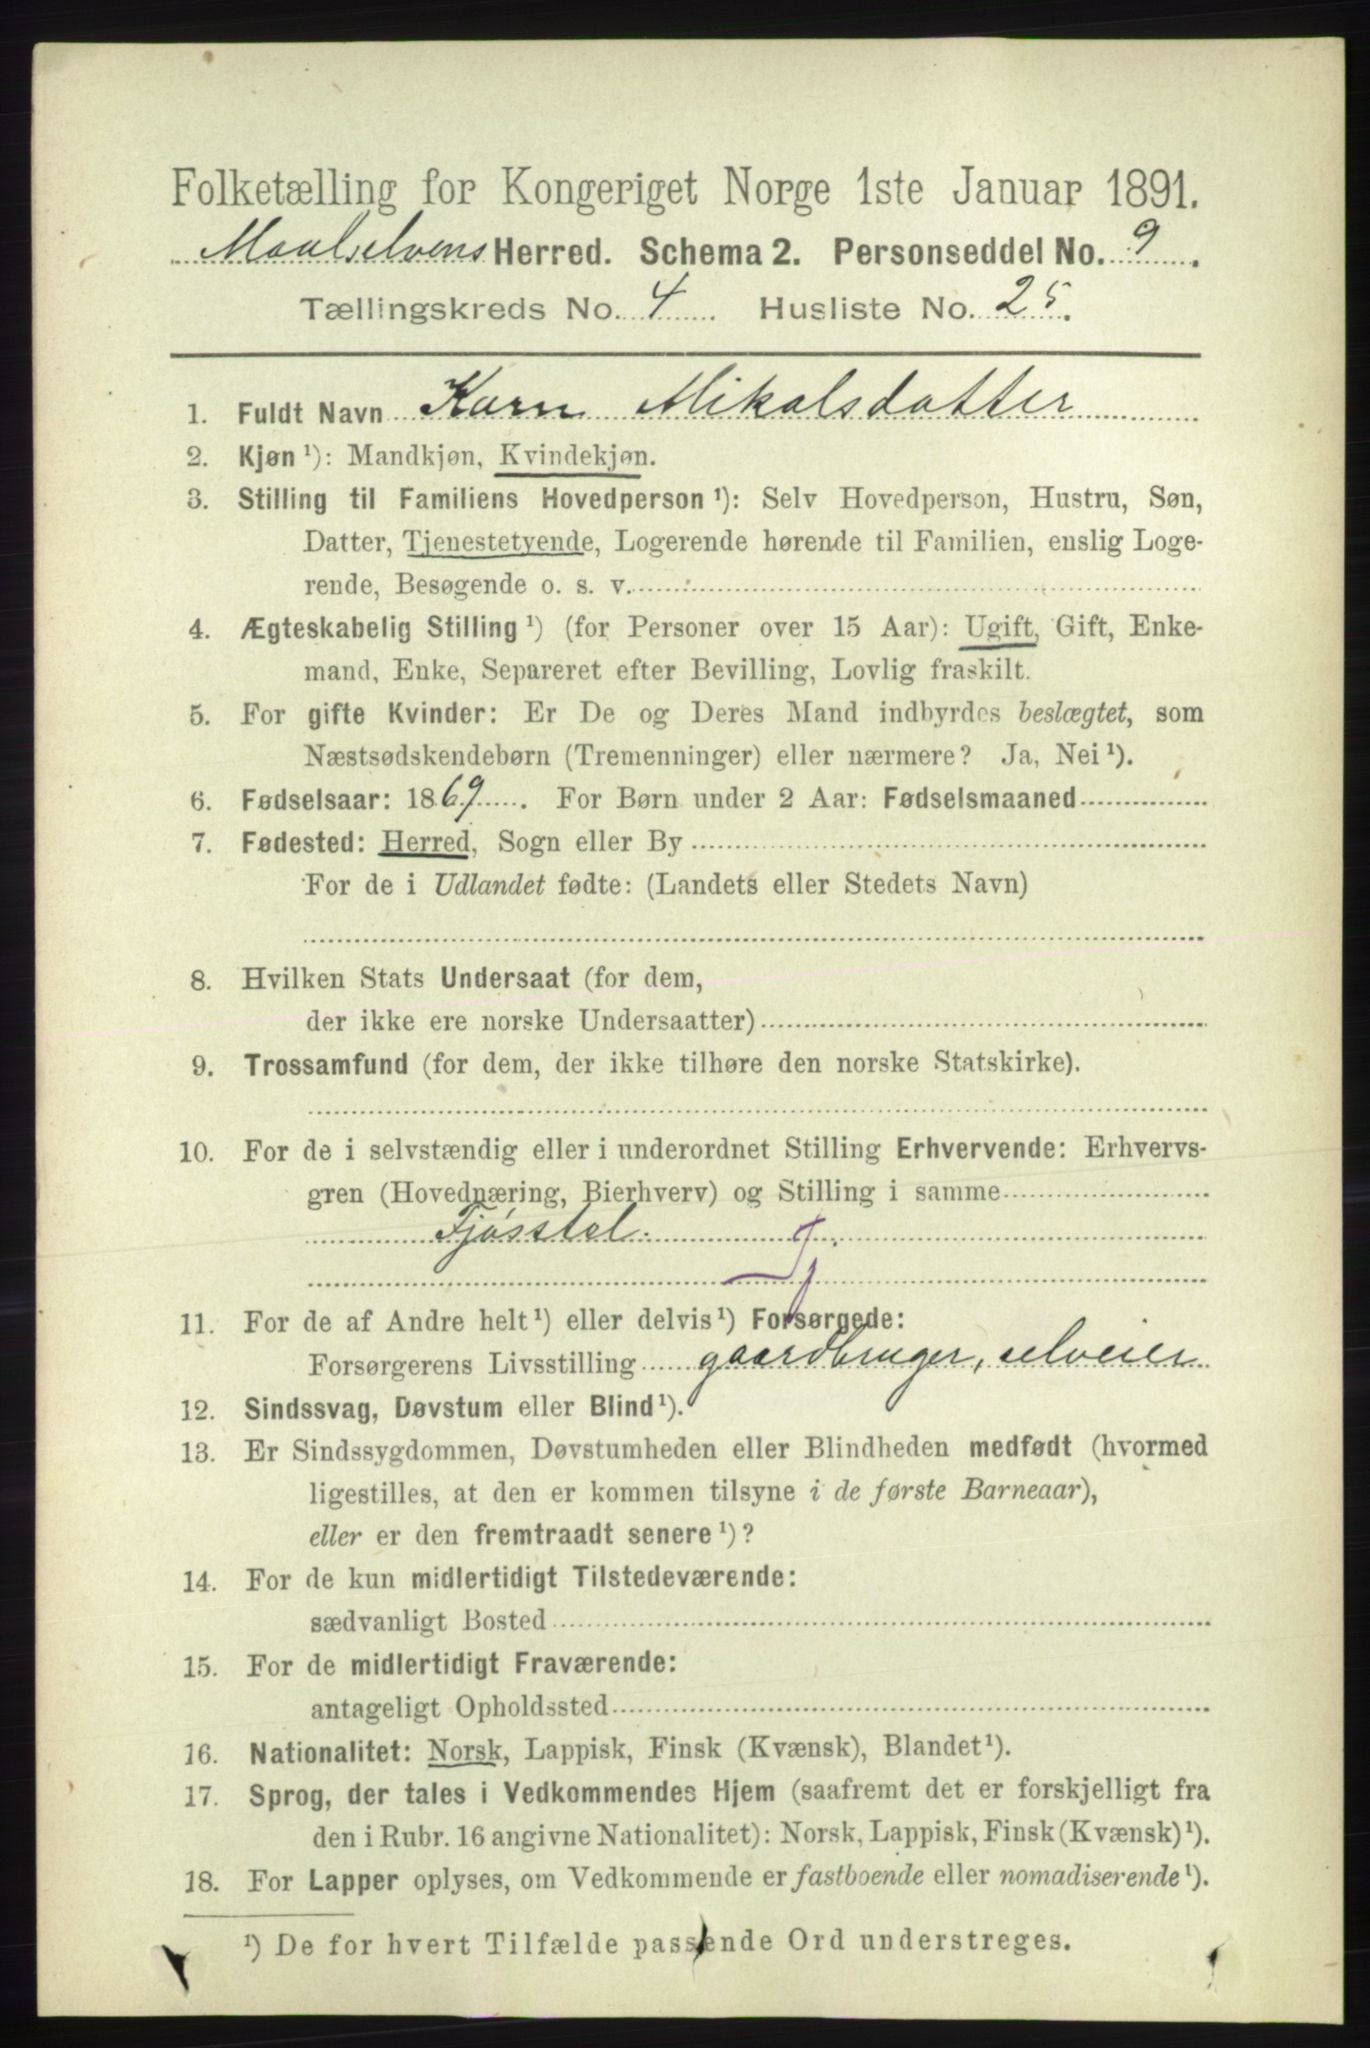 Folketælling for Kongeriget Norge 1ste Januar 1891.
Maalselvens Herred. Schema 2. Personseddel No. 9.
Tællingskreds No. 4 Husliste No. 25.
1. Fuldt Navn Karn Mikalsdatter
2. Kjøn ¹): Mandkjøn, Kvindekjøn.
3. Stilling til Familiens Hovedperson ¹): Selv Hovedperson, Hustru, Søn,
Datter, Tjenestetyende, Logerende hørende til Familien, enslig Loge-
rende, Besøgende o. s. v.
4. Ægteskabelig Stilling ¹) (for Personer over 15 Aar): Ugift, Gift, Enke-
mand, Enke, Separeret efter Bevilling, Lovlig fraskilt.
5. For gifte Kvinder: Er De og Deres Mand indbyrdes beslægtet, som
Næstsødskendebørn (Tremenninger) eller nærmere? Ja, Nei ¹).
6. Fødselsaar: 1869. For Børn under 2 Aar: Fødselsmaaned
7. Fødested: Herred, Sogn eller By
For de i Udlandet fødte: (Landets eller Stedets Navn)
8. Hvilken Stats Undersaat (for dem,
der ikke ere norske Undersaatter)
9. Trossamfund (for dem, der ikke tilhøre den norske Statskirke).
10. For de i selvstændig eller i underordnet Stilling Erhvervende: Erhvervs-
gren (Hovednæring, Bierhverv) og Stilling i samme
Fjøsstel. Tj.
11. For de af Andre helt ¹) eller delvis ¹) Forsørgede:
Forsørgerens Livsstilling gaardbruger, selveier
12. Sindssvag, Døvstum eller Blind ¹).
13. Er Sindssygdommen, Døvstumheden eller Blindheden medfødt (hvormed
ligestilles, at den er kommen tilsyne i de første Barneaar),
eller er den fremtraadt senere ¹)?
14. For de kun midlertidigt Tilstedeværende:
sædvanligt Bosted
15. For de midlertidigt Fraværende:
antageligt Opholdssted
16. Nationalitet: Norsk, Lappisk, Finsk (Kvænsk), Blandet ¹).
17. Sprog, der tales i Vedkommendes Hjem (saafremt det er forskjelligt fra
den i Rubr. 16 angivne Nationalitet): Norsk, Lappisk, Finsk (Kvænsk) ¹).
18. For Lapper oplyses, om Vedkommende er fastboende eller nomadiserende ¹).
¹) De for hvert Tilfælde passende Ord understreges.